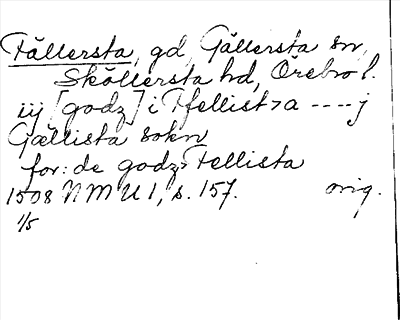 Fällersta, gd, Gällersta sn,
Sköllersta hd, Örebro l.
iij [godz] i Ffellista ---- j
Gællista sokn
for: de godz Fellista
1508 NMU 1, s. 157. orig.
1/5